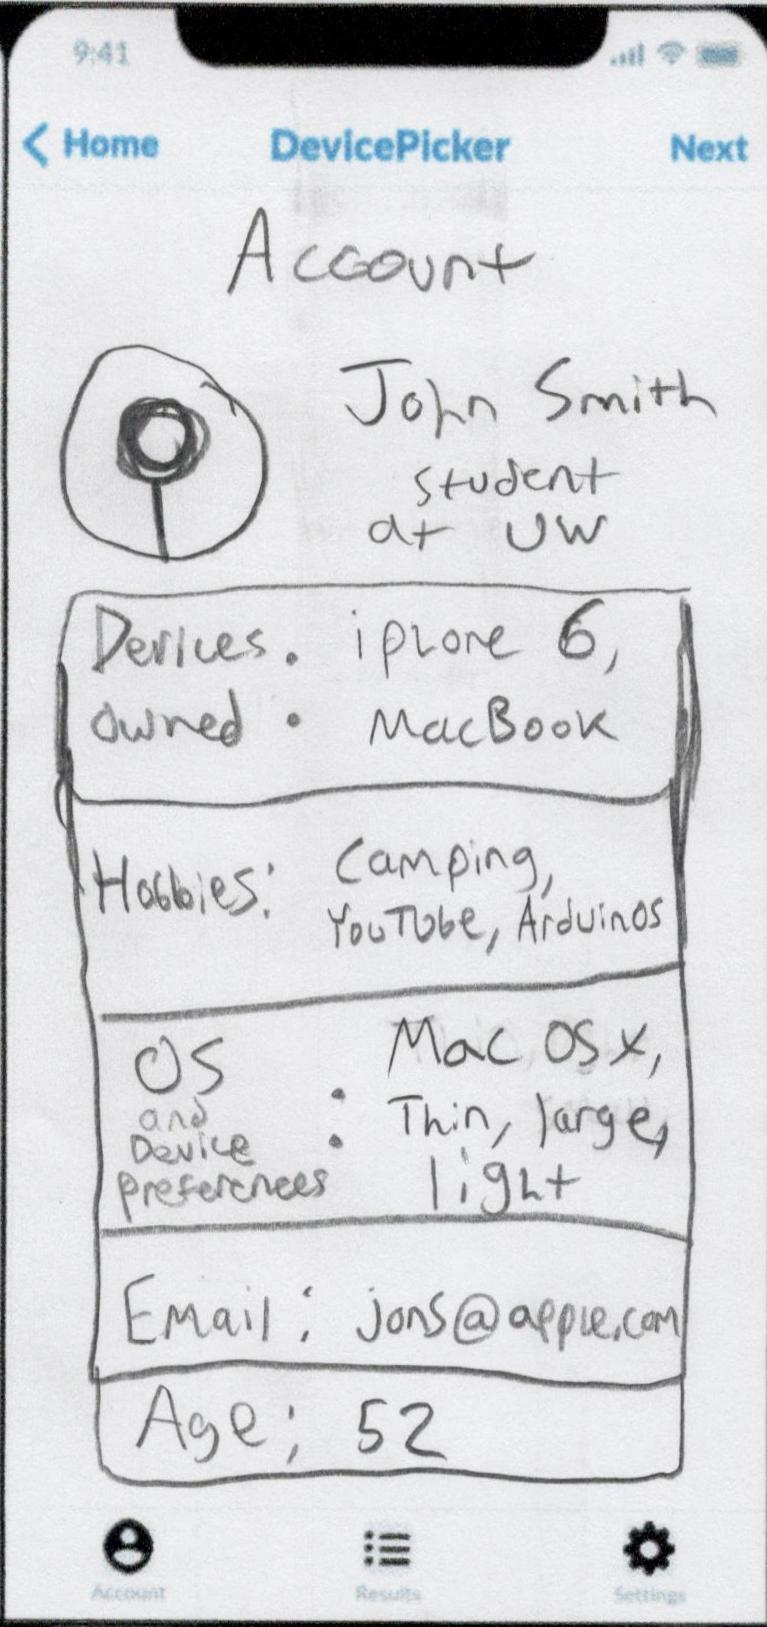 9:41
Home DevicePicker Next
Account
John Smith
student
at UW
Devices : iphone 6,
owned MacBook
Hobbies: Camping,
YouTube, Arduinos
OS Mac OS X,
and : Thin, large,
Device
preferences light
Email: jons@apple.com
Age: 52
Account Results Settings